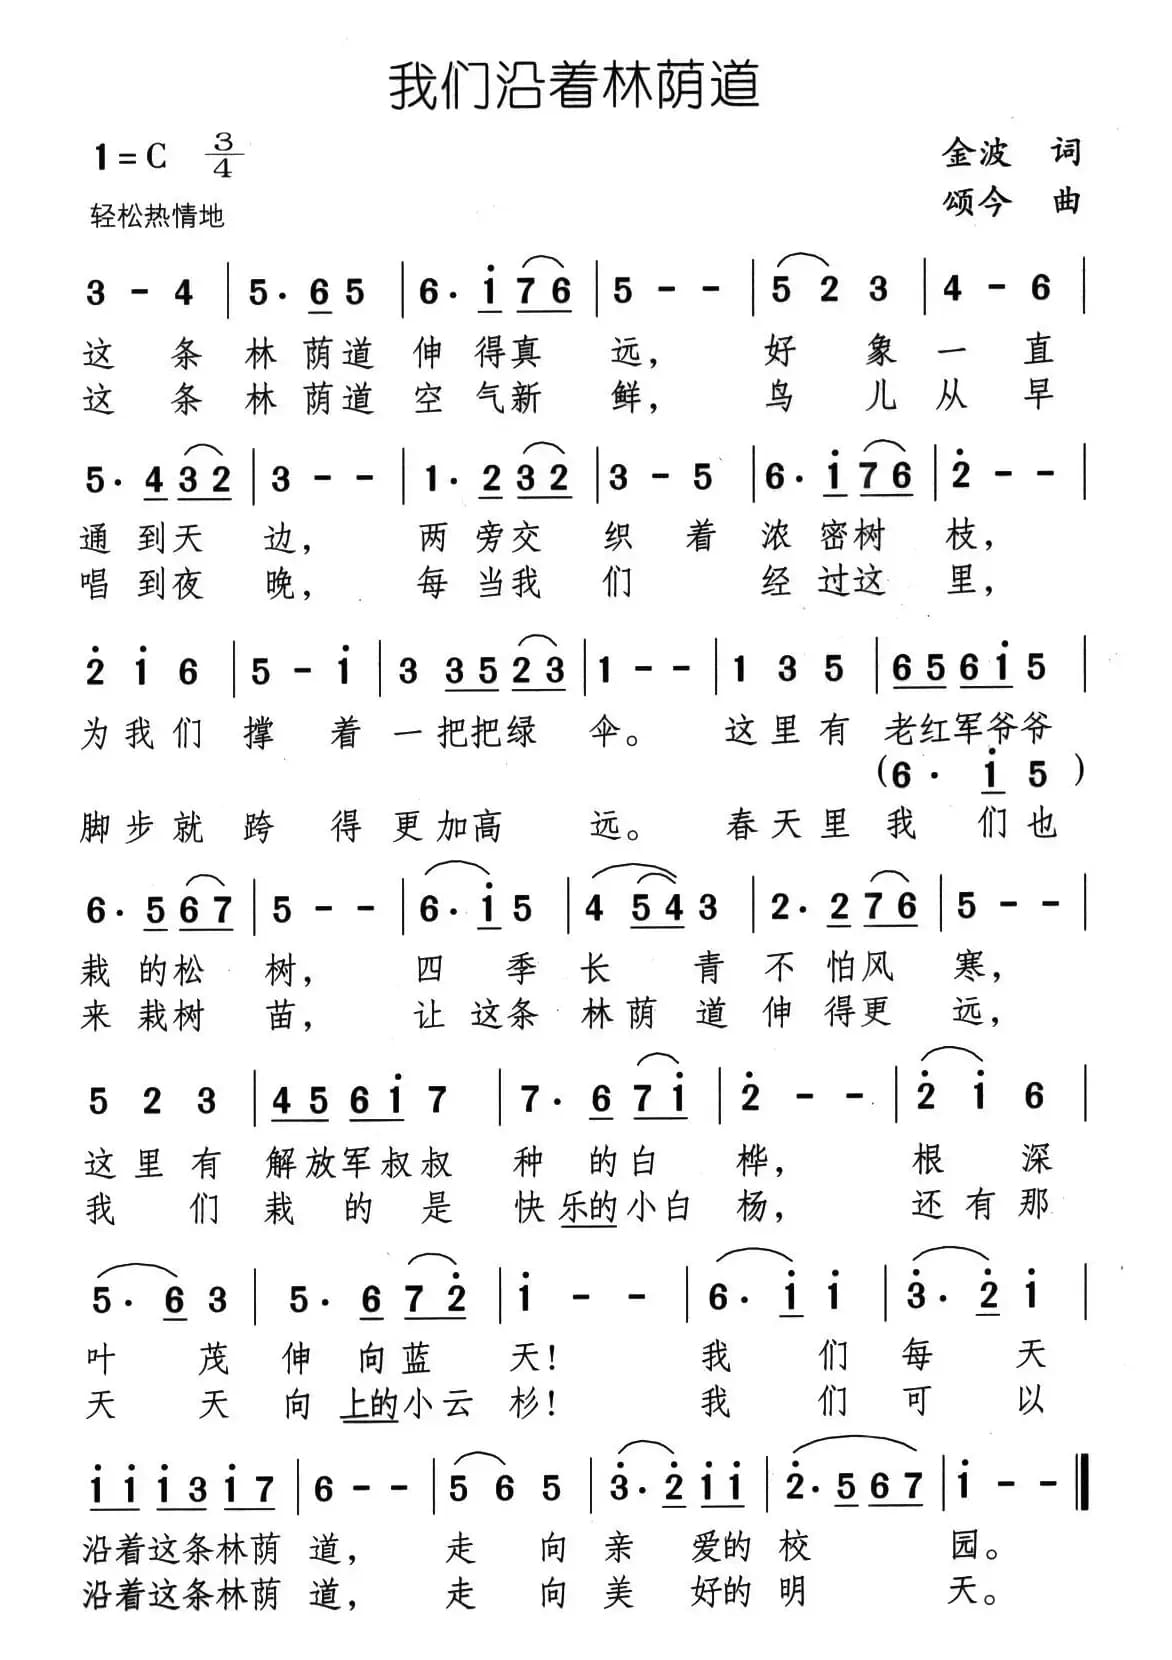 我们沿着林荫道
1=C 3/4
金波 词
轻松热情地
颂今 曲
3 - 4 | 5· 6 5 | 6· i 7 6 | 5 - - | 5 2 3 | 4 - 6 |
这 条 林 荫道 伸 得真 远， 好 象 一 直
这 条 林 荫道 空 气新 鲜， 鸟 儿 从 早
5· 4 3 2 | 3 - - | 1· 2 3 2 | 3 - 5 | 6· i 7 6 | 2 - - |
通 到天 边， 两 旁交 织 着 浓 密树 枝，
唱 到夜 晚， 每 当我 们 经 过这 里，
2 i 6 | 5 - i | 3 3 5 2 3 | 1 - - | 1 3 5 | 6 5 6 i 5 |
为 我 们 撑 着 一 把把绿 伞。 这 里 有 老红军爷爷
(6· i 5)
脚 步 就 跨 得 更加高 远。 春 天 里 我 们 也
6· 5 6 7 | 5 - - | 6· i 5 | 4 5 4 3 | 2· 2 7 6 | 5 - - |
栽 的松 树， 四 季 长 青 不 怕风 寒，
来 栽树 苗， 让 这条 林 荫 道 伸 得更 远，
5 2 3 | 4 5 6 i 7 | 7· 6 7 i | 2 - - | 2 i 6 |
这 里 有 解放军叔叔 种 的白 桦， 根 深
我 们 栽 的 是 快 乐的小白 杨， 还 有 那
5· 6 3 | 5· 6 7 2 | i - - | 6· i i | 3· 2 i |
叶 茂 伸 向蓝 天！ 我 们 每 天
天 天 向 上的小云 杉！ 我 们 可 以
i i i 3 i 7 | 6 - - | 5 6 5 | 3· 2 i i | 2· 5 6 7 | i - - ‖
沿着这条林荫 道， 走 向 亲 爱的 校 园。
沿着这条林荫 道， 走 向 美 好的 明 天。